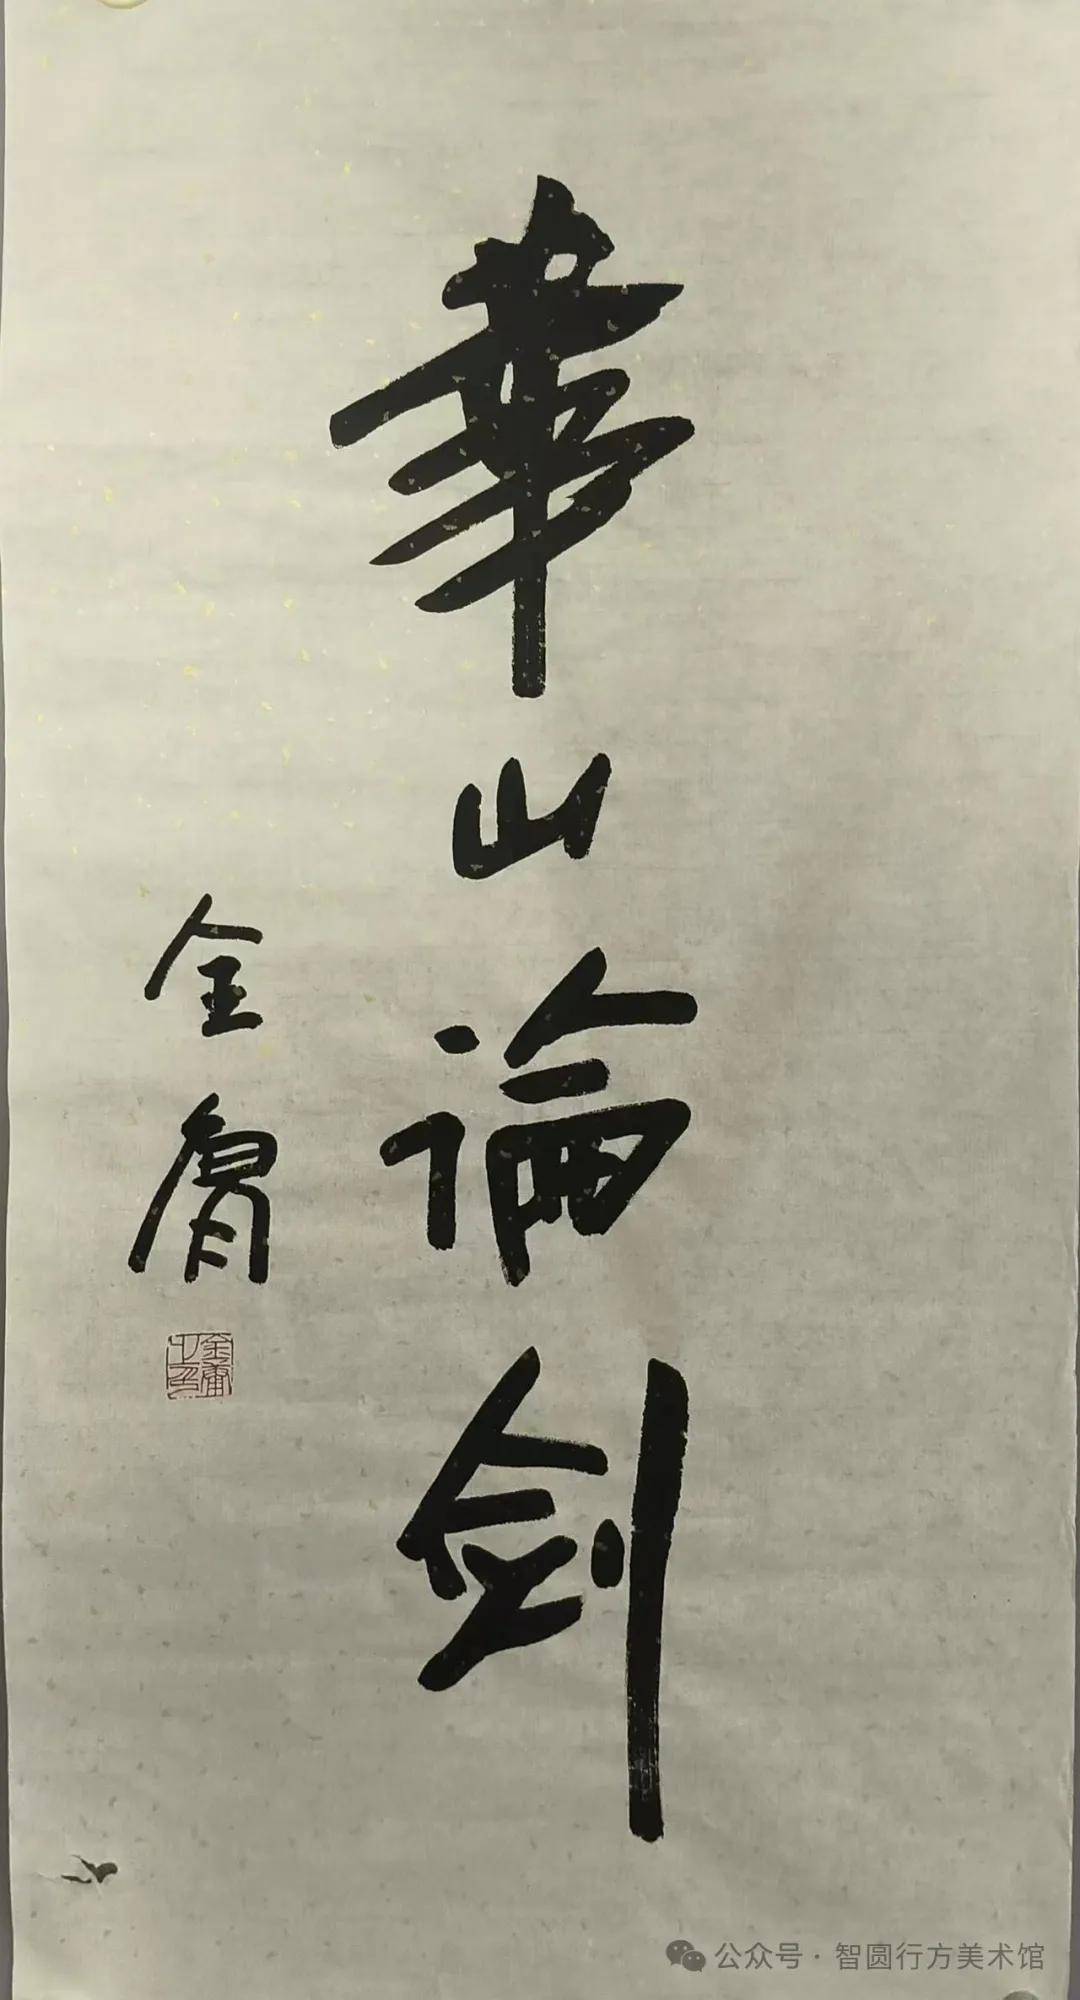 華山論剑
金庸
金庸之印
公众号·智圆行方美术馆